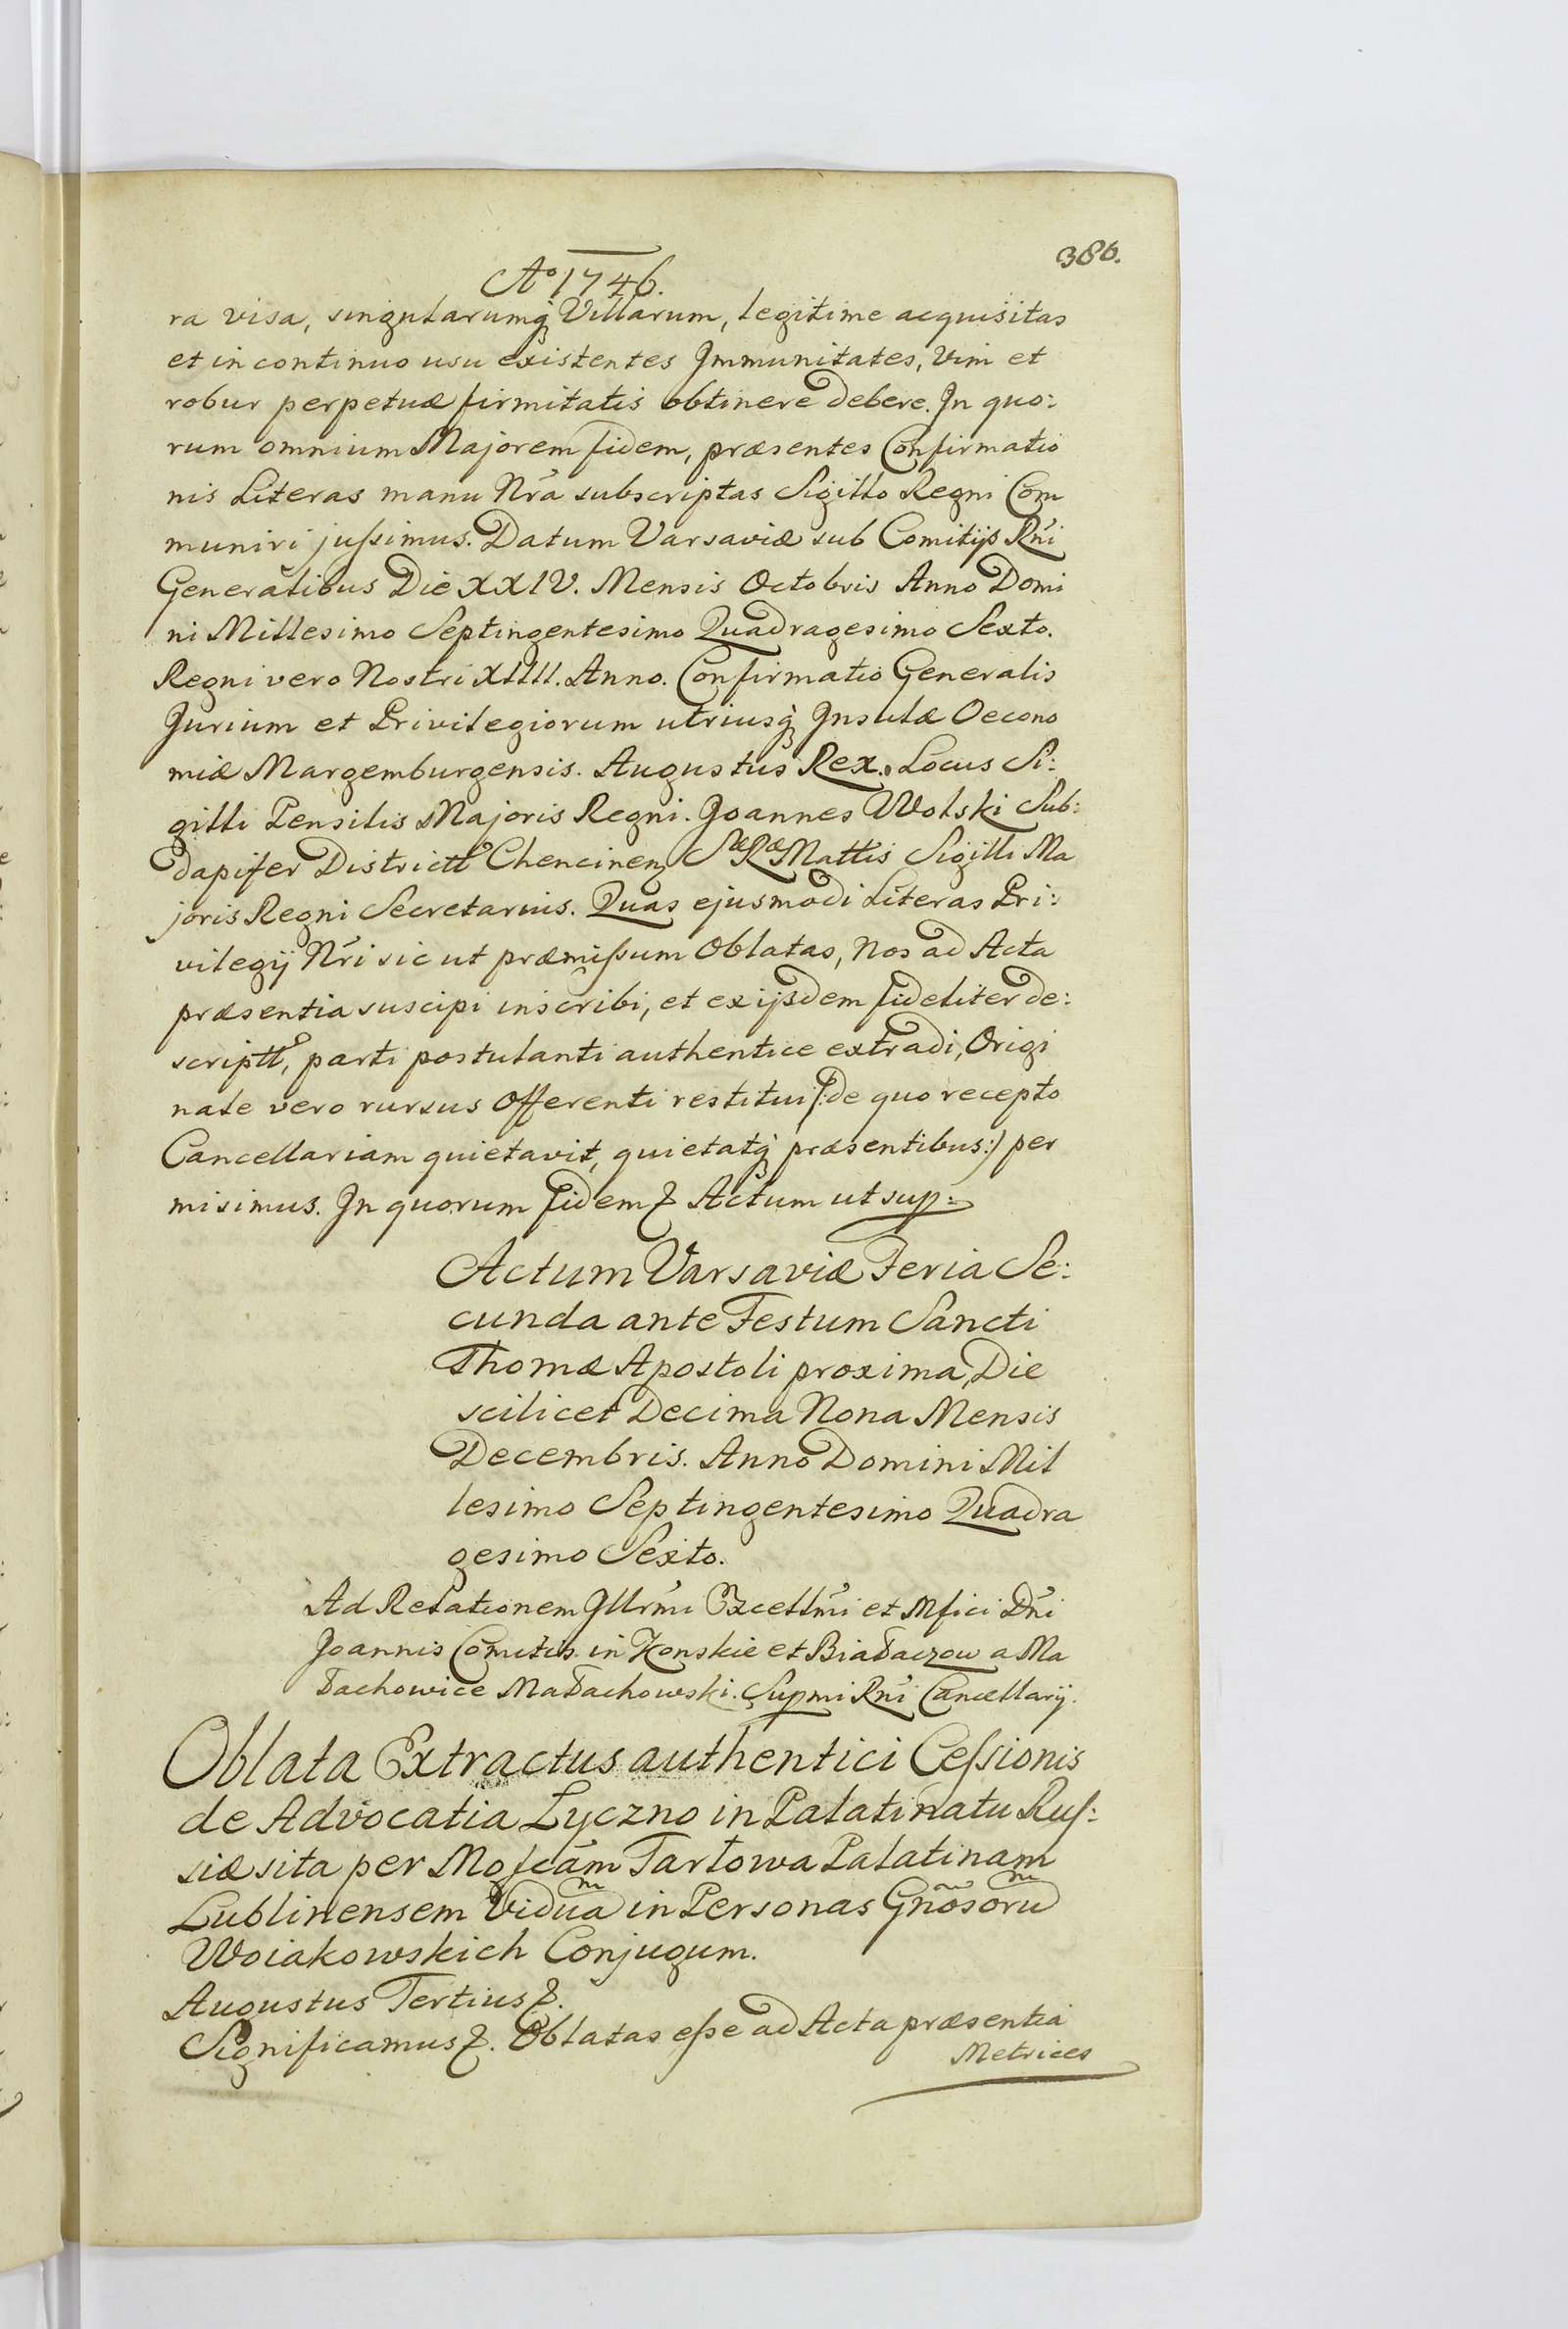 386.
Aº 1746.
ra visa, singularumq́ Villarum, legitime acquisitas
et in continuo usu existentes Immunitates, Vim et
robur perpetuæ firmitatis obtinere debere. In quo:
rum omnium Majorem fidem, præsentes Confirmatio
nis Literas manu Nr̃a subscriptas Sigillo Regni Com
muniri jussimus. Datum Varsaviæ sub Comitijs Rńi
Generalibus Die XXIV. Mensis Octobris Anno Domi
ni Millesimo Septingentesimo Quadragesimo Sexto.
Regni vero Nostri XIIII. Anno. Confirmatio Generalis
Jurium et Privilegiorum utriusq́ Insulæ Oecono
miæ Margemburgensis. Augustus Rex. Locus Si:
gilli Pensilis Majoris Regni. Joannes Wolski Sub:
dapifer Districtt Chencinen Sæ Ræ Mattis Sigilli Ma
joris Regni Secretarius. Quas ejusmodi Literas Pri:
vilegij Nŕi sic ut præmissum Oblatas, Nos ad Acta
præsentia suscipi inscribi, et ex ijsdem fideliter de:
scriptt, parti postulanti authentice extradi, Origi
nale vero rursus Offerenti restitui /:de quo recepto
Cancellariam quietavit, quietatq́ præsentibus:/ per
misimus. In quorum fidem & Actum ut sup:
Actum Varsaviæ Feria Se:
cunda ante Festum Sancti
Thomæ Apostoli proxima, Die
scilicet Decima Nona Mensis
Decembris. Anno Domini Mil
lesimo Septingentesimo Quadra
gesimo Sexto.
Ad Relationem Illrm̃i Excellm̃i et Mfici Dńi
Joannis Com̃itis in Konskie et Białaczow a Ma
łachowice Małachowski. Supmi Rńi Cancellarij.
Oblata Extractus authentici Cessionis
de Advocatia Lyczno in Palatinatu Rus:
siæ sita per Mgfcam̃ Tarłowa Palatinam
Lublinensem Viduam in Personas Gn̄osorum
Woiakowskich Conjugum.
Augustus Tertius &.
Significamus &. Oblatas esse ad Acta præsentia
Metrices